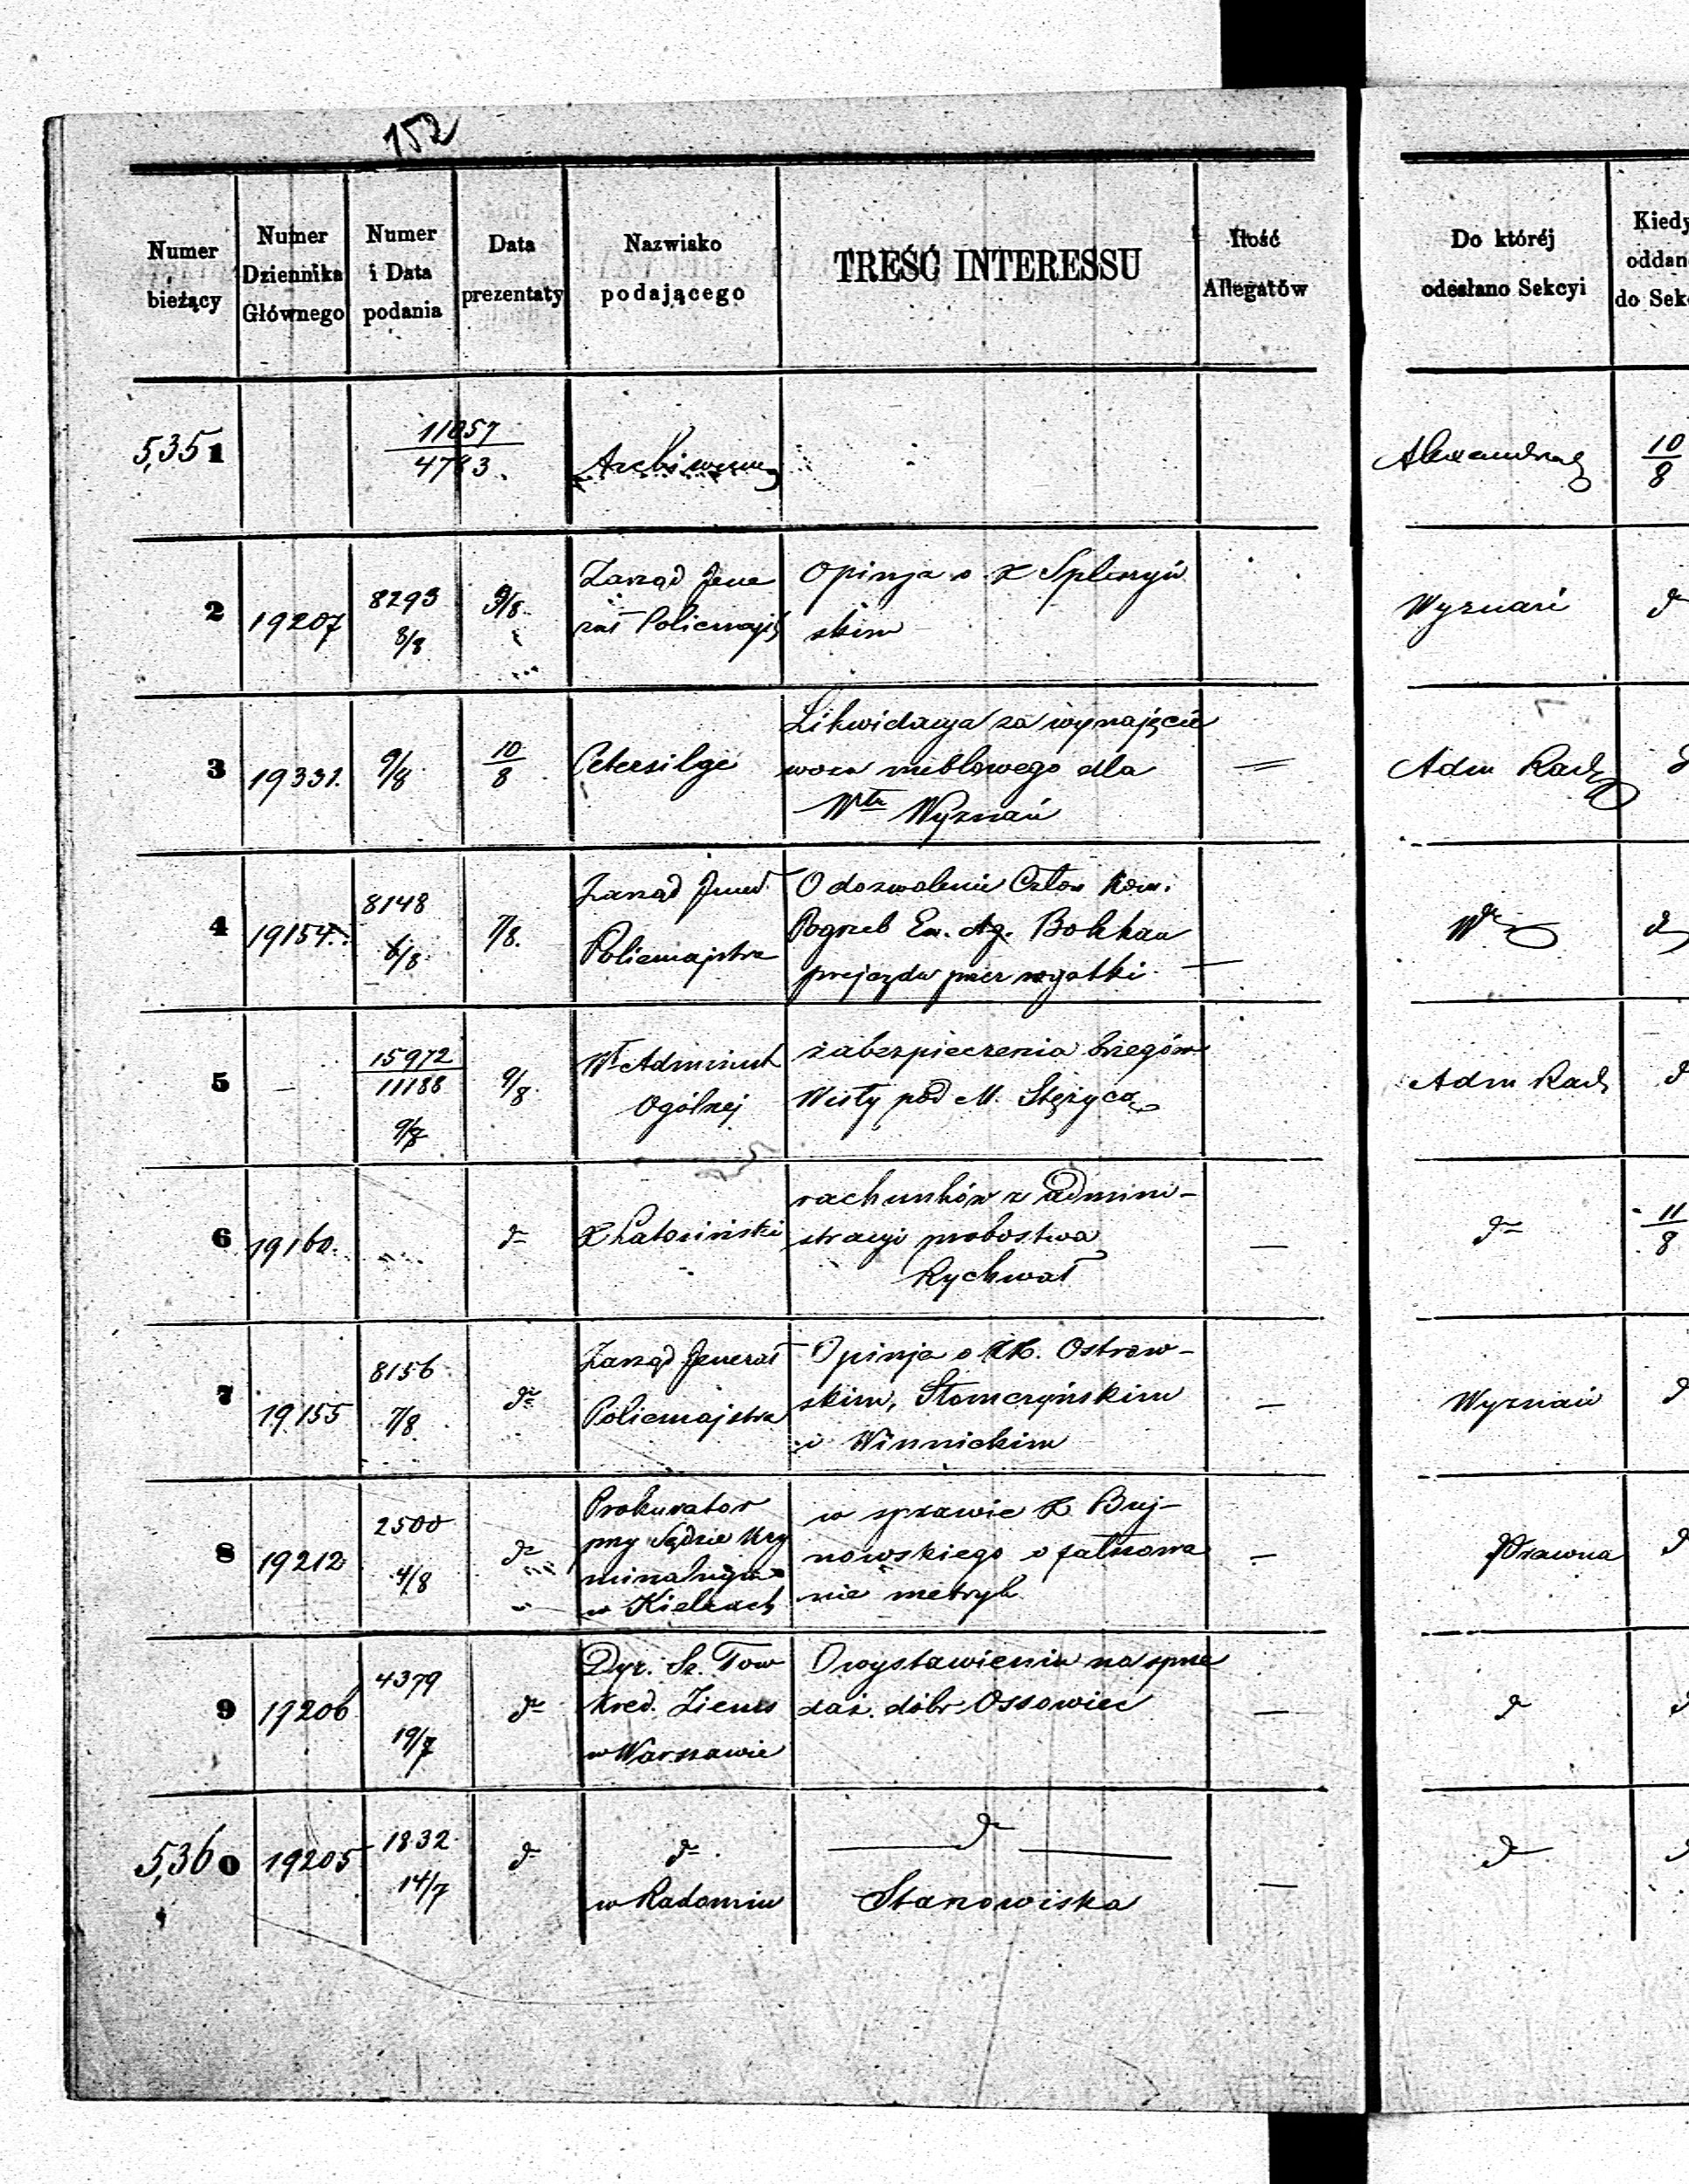 152
Numer bieżący
Numer Dziennika Głównego
Numer i Data podania
Data prezentaty
Nazwisko podającego
TREŚĆ INTERESSU
Ilość Allegatów
Do któréj odesłano Sekcyi
Kiedy oddan do Sek
5,351
11057
4783
10/8
2 19207
8293
8/8
9/8
Zarząd Jene
rał Policmajs
Opinja o X
skim
Wyznań
d
3 19331.
9/8
10/8
Likwidacya za wynajęcie
woza meblowego dla
Włu Wyznań
=
Adm Rach
d
4 19154.
8148
6/8
7/8.
Zarząd Jenerł
Policmajstra
O dozwolenie Człon Kom.
Pogrzeb Em. Ag.
przejazdu przez rogatki
—
d
5 —
15972
11188
9/8
9/8.
Wł Administ
Ogólnej
zabezpieczenia brzegów
Wisły pod M. Stężycą
Adm Rach
d
6 19160.
d
X
rachunków z admini-
stracyi probostwa
Rychwał
—
d
11/8
7 19155
8156.
7/8
d
Zarząd Jenerał
Policmajstra
Opinja o XX. Ostrow-
skim, Słomczyńskim
i Winnickim
—
Wyznań
d
8 19212
2500
4/8
d
Prokurator
przy Sądzie Kry
minalnym
w Kielcach
w sprawie X Buj-
nowskiego o fałszowa
nie metryk
—
Prawna
d
9 19206
4379
19/7
d
Dyr. Sz. Tow
Kred. Ziems
w Warszawie
O wystawieniu na sprze
daż. dóbr Ossowiec
—
d
d
5,360 19205
1832
14/7
d
d
w Radomiu
— d —
Stanowiska
—
d
d